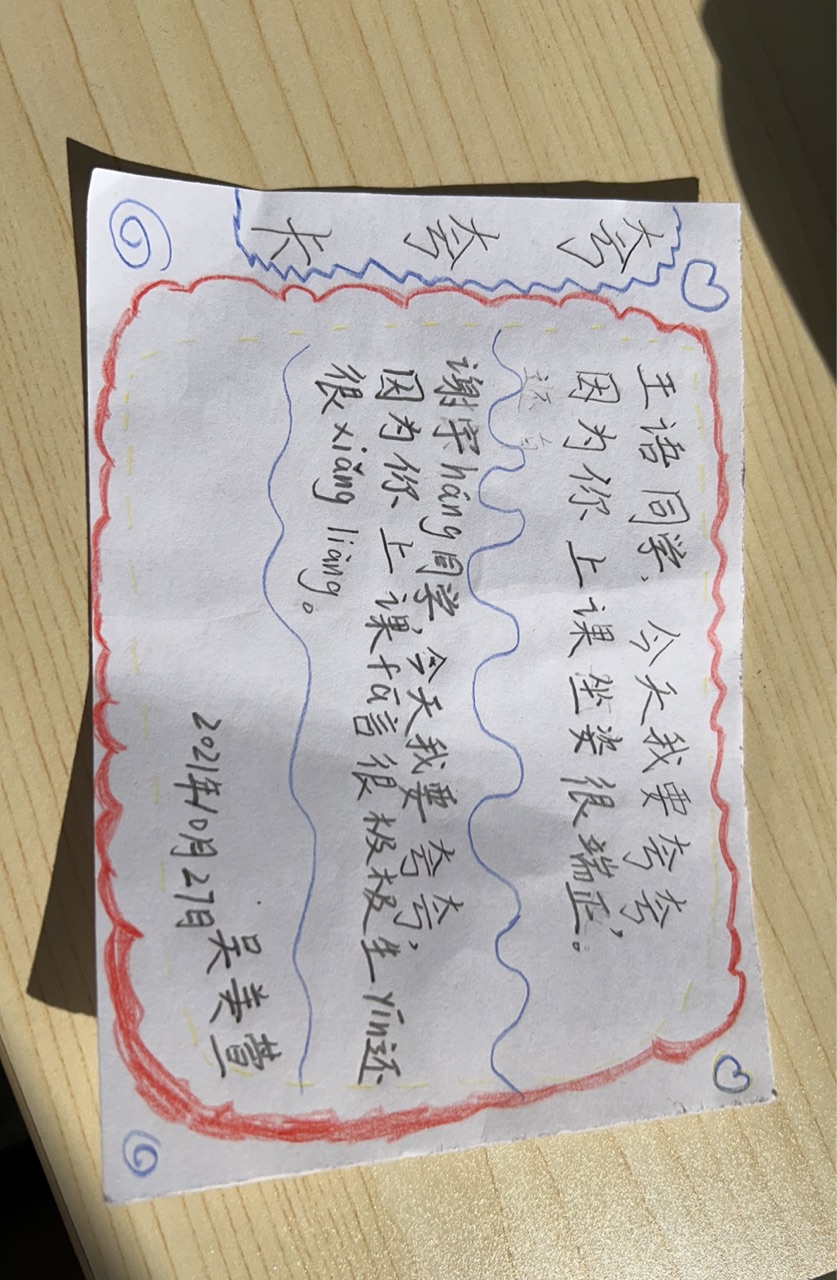 夸夸卡
王语同学,今天我要夸夸,
因为你上课坐姿很端正。
谢宇háng同学,今天我要夸夸,
因为你上课fā言很极极,生yīn还
很xiǎng liàng。
吴美萱
2021年10月27日